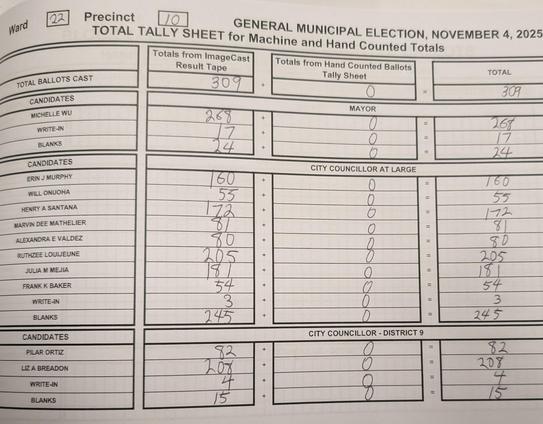 Ward 22 Precinct 10 GENERAL MUNICIPAL ELECTION, NOVEMBER 4, 2025
TOTAL TALLY SHEET for Machine and Hand Counted Totals
Totals from ImageCast Result Tape Totals from Hand Counted Ballots Tally Sheet TOTAL
TOTAL BALLOTS CAST 309 + 0 = 309
CANDIDATES MAYOR
MICHELLE WU 268 + 0 = 268
WRITE-IN 17 + 0 = 17
BLANKS 24 + 0 = 24
CANDIDATES CITY COUNCILLOR AT LARGE
ERIN J MURPHY 160 + 0 = 160
WILL ONUOHA 55 + 0 = 55
HENRY A SANTANA 172 + 0 = 172
MARVIN DEE MATHELIER 81 + 0 = 81
ALEXANDRA E VALDEZ 80 + 0 = 80
RUTHZEE LOUIJEUNE 205 + 0 = 205
JULIA M MEJIA 181 + 0 = 181
FRANK K BAKER 54 + 0 = 54
WRITE-IN 3 + 0 = 3
BLANKS 245 + 0 = 245
CANDIDATES CITY COUNCILLOR - DISTRICT 9
PILAR ORTIZ 82 + 0 = 82
LIZ A BREADON 208 + 0 = 208
WRITE-IN 4 + 0 = 4
BLANKS 15 + 0 = 15